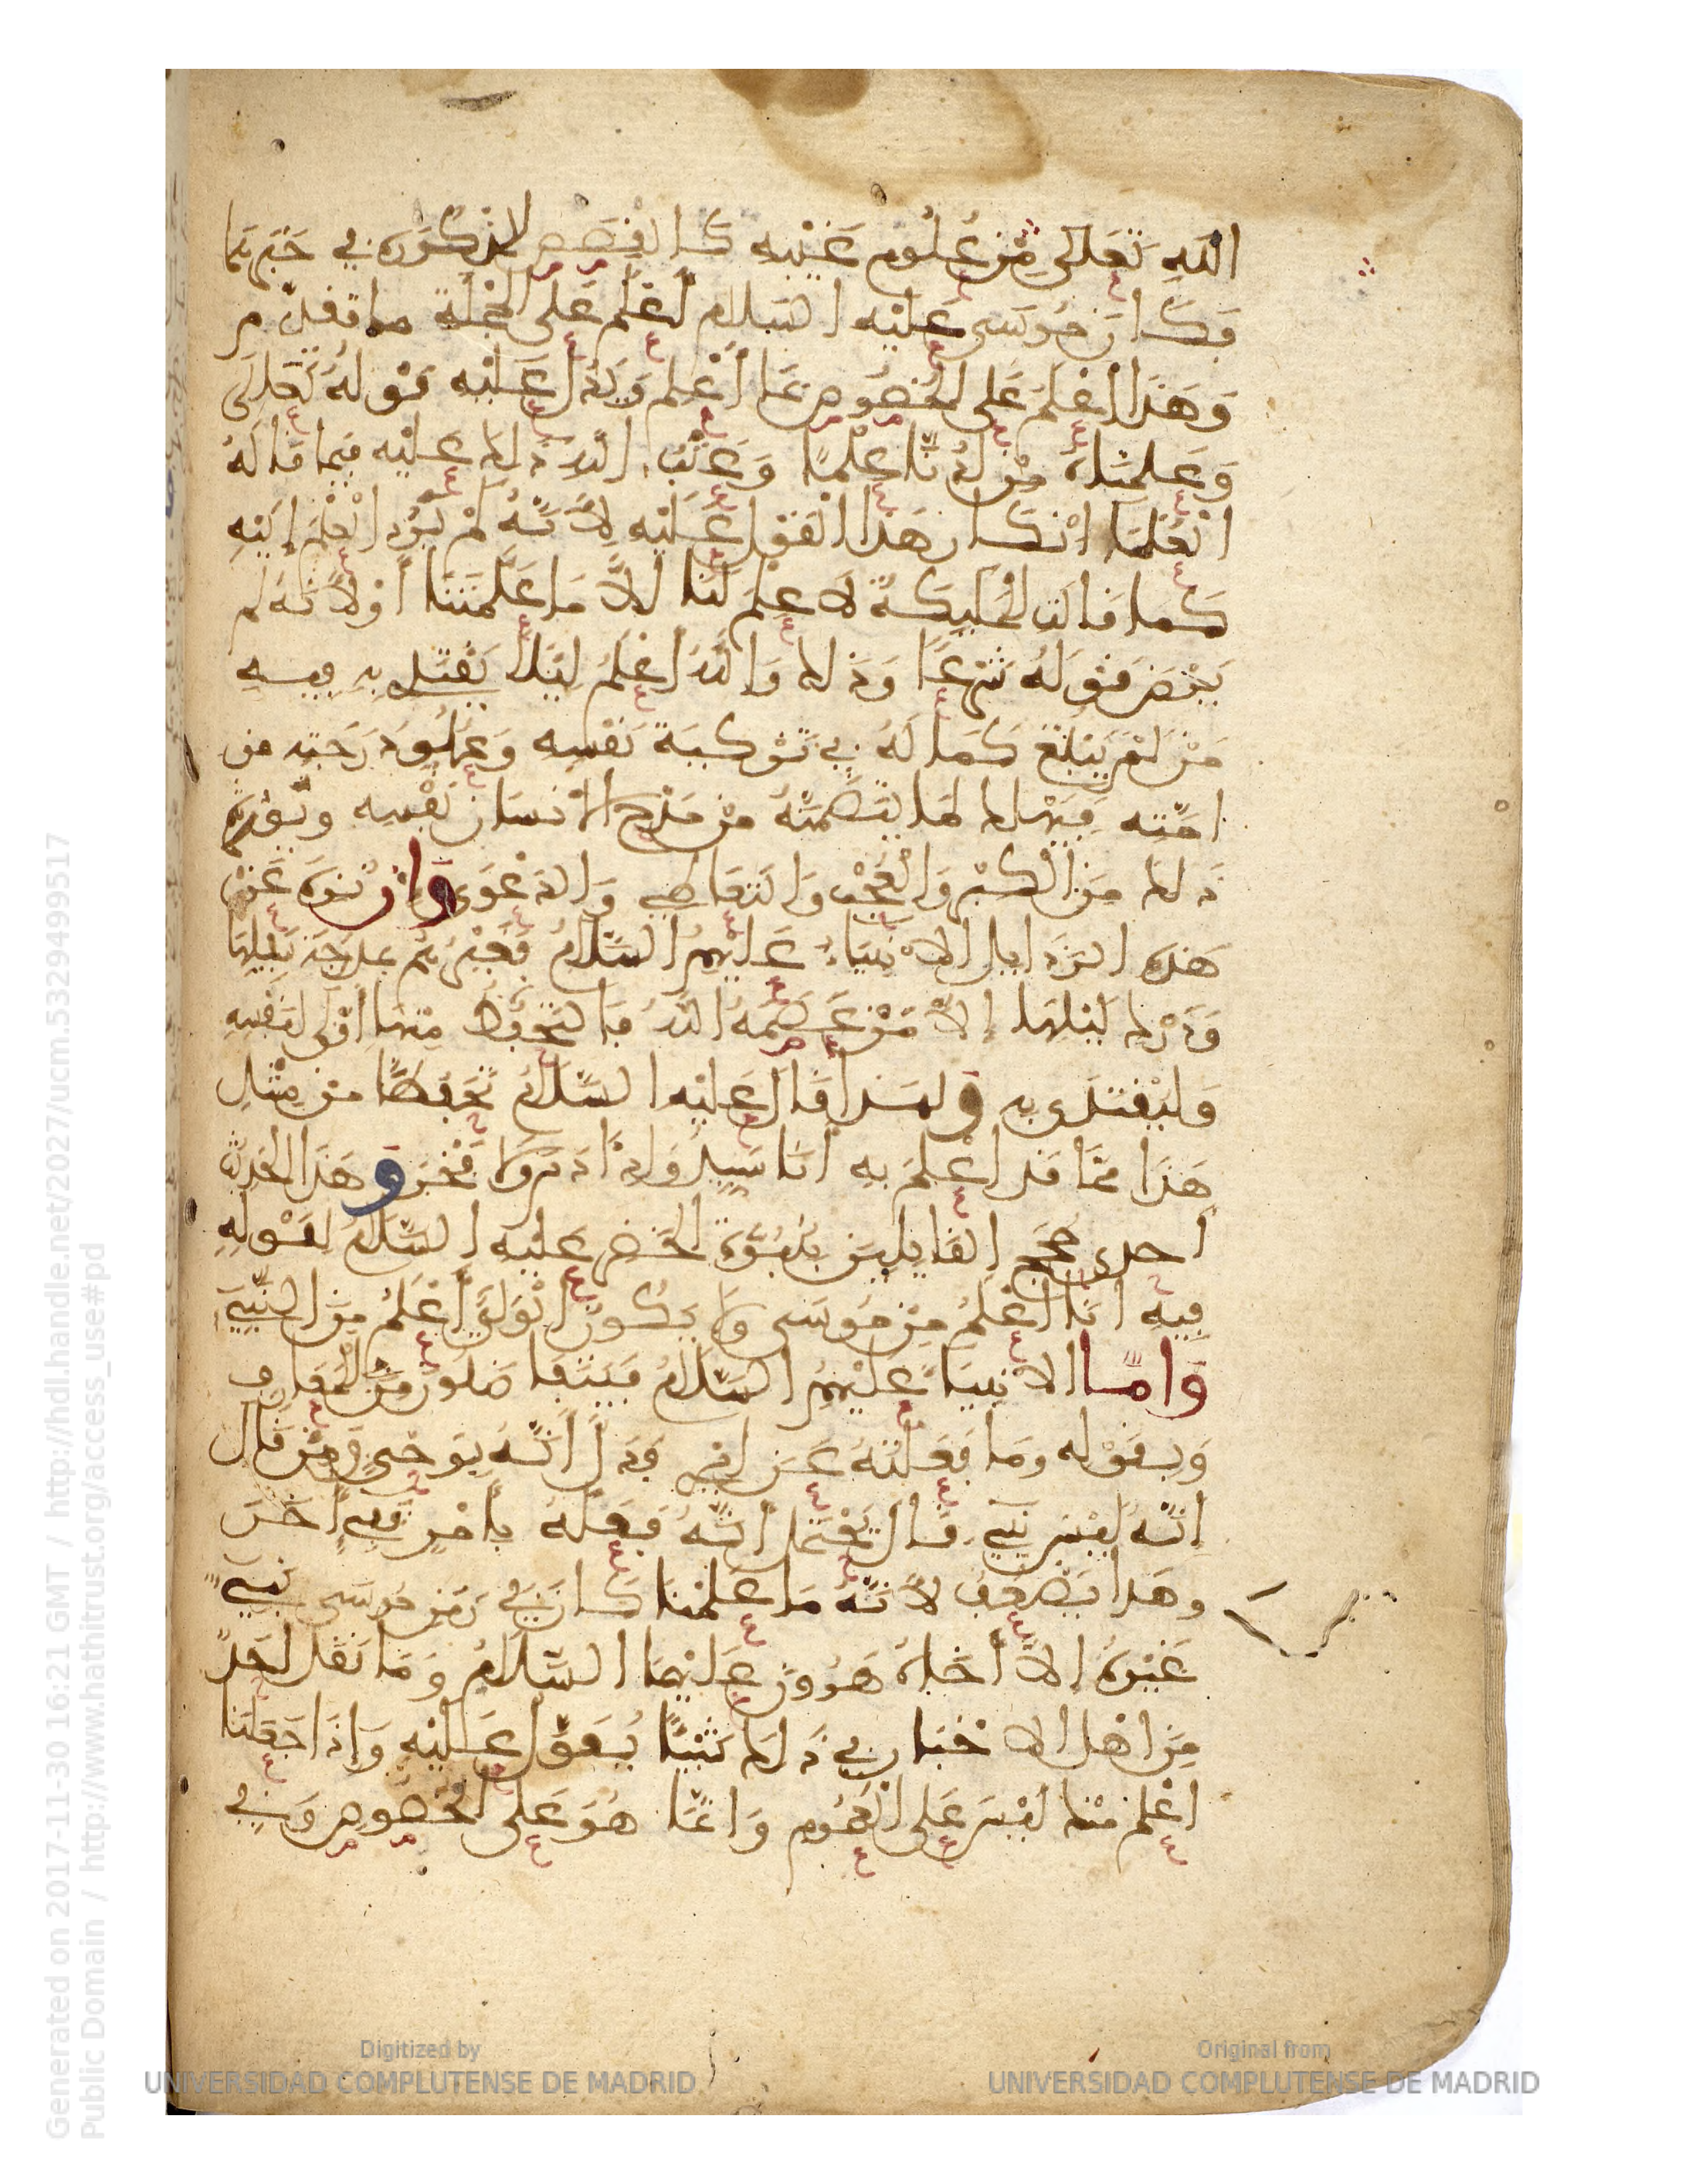 الله تَعَلَى مِنْ عُلُومِ غَيْبِهِ كَالفِصَصِ المَذْكُورَةِ فِي خَبَرِهِمَا
فَكَانَ مُوسَى عَلَيْهِ السَّلَام أَعْلَمَ عَلَى الجُمْلَةِ مما تقدّم
وَهَذَا أَعْلَمَ عَلَى الخُصُوصِ بِمَا أُعْلِمَ وَيَدُلُّ عَلَيْهِ قَوْلُهُ تَعَلَى
وَعَلَّمْنَاهُ مِن لَّدُنَّا عِلْمًا وَعَتْبُ اللَّهِ ذلك عَلَيْهِ فِيمَا قَالَهُ
العُلَمَا انْكَار هَذَا القَوْلِ عَلَيْهِ لِأَنَّهُ لَمْ يَرُدّ العِلْمَ إِلَيْهِ
كَمَا قَالَتِ المَلَيِكَةُ لَا عِلْمَ لَنَا إِلَّا مَا عَلَّمْتَنَا أَوْ لِأَنَّهُ لَم
يَرْضَ قَوْلَهُ شَرْعًا وَذَلِكَ وَاللَّهُ أَعْلَمُ لِيَلَّا يَقْتَدِي بِهِ فِيهِ
مَنْ لَمْ يَبْلُغْ كَمَالَهُ فِي تَزْكِيَةِ نَفْسِهِ وَعُلُوِّ دَرَجَتِهِ مِن
امَّتِهِ فَيَهْلِك لِمَا يَتَضَمَّنُهُ مِنْ مَدْحِ الإِنْسَانِ نَفْسِهِ وَيُورِثُهُ
ذَلِكَ مِنَ الكِبْرِ وَالعُجْبِ وَالتَعَاطِي وَالدَّعْوَى وَإِن نُزِّهَ عَنْ
هَذِهِ الرَّذَايِلِ الأَنْبِيَاءُ عَلَيْهِمُ السَّلَامُ فَغَيْرُهُمْ بِمَدْرَجَةِ سَبِيلِهَا
وَدَرْكِ لَيْلِهَا إِلَّا مَنْ عَصَمَهُ اللَّهُ فَالتَّحَفُّظُ مِنْهَا أَوْلَى لِنَفْسِهِ
وَلِيُقْتَدَى بِهِ وَلِهَذَا قَالَ عَلَيْهِ السَّلَامُ تَحَفُّظًا مِنْ مِثْلِ
هَذَا مِمَّا قَدْ أُعْلِمَ بِهِ أَنَا سَيِّدُ وَلَدِ آدَمَ وَلَا فَخْرَ وَهَذَا الحَدِيثُ
احدى حُجَجِ القَايِلِينَ بِنُبُوَّةِ الخَضِرِ عَلَيْهِ السَّلَامُ لِقَوْلِهِ
فِيهِ أَنَا أَعْلَمُ مِنْ مُوسَى وَلَا يَكُونُ الْوَلِيُّ أَعْلَمُ مِنَ النَّبِيِّ
وَأَمَّا الأَنْبِيَا عَلَيْهِمُ السَّلَامُ فَيَتَفَاضَلُونَ فِي المَعَارِفِ
وَبِقَوْلِهِ وَمَا فَعَلْتُهُ عَنْ أَمْرِي فَدَلَّ أَنَّهُ بِوَحْيٍ وَمَنْ قَالَ
إِنَّهُ لَيْسَ بِنَبِيٍّ قَالَ يَحْتَمِلُ أَنَّهُ فَعَلَهُ بِأَمْرِ نَبِيٍّ آخَرَ
وهَذَا يَضْعُفُ لِأَنَّهُ مَا عَلِمْنَا كَانَ فِي زَمَنِ مُوسَى نَبِيٌّ
غَيْرَهُ إِلَّا أَخَاهُ هَرُونَ عَلَيْهِمَا السَّلَامُ وَمَا نَقَلَ أَحَدٌ
مِنَ اهْلِ الأَخْبَارِ فِي ذَلِكَ شَيْئًا يُعَوَّلُ عَلَيْهِ وَإِذَا جَعَلْنَا
اعْلَم مِنْكَ لَيْسَ عَلَى العُمُومِ وَإِنَّمَا هُوَ عَلَى الخُصُوصِ وَفِي
Generated on 2017-11-30 16:21 GMT / http://hdl.handle.net/2027/ucm.5329499517
Public Domain / http://www.hathitrust.org/access_use#pd
Digitized by
UNIVERSIDAD COMPLUTENSE DE MADRID
Original from
UNIVERSIDAD COMPLUTENSE DE MADRID